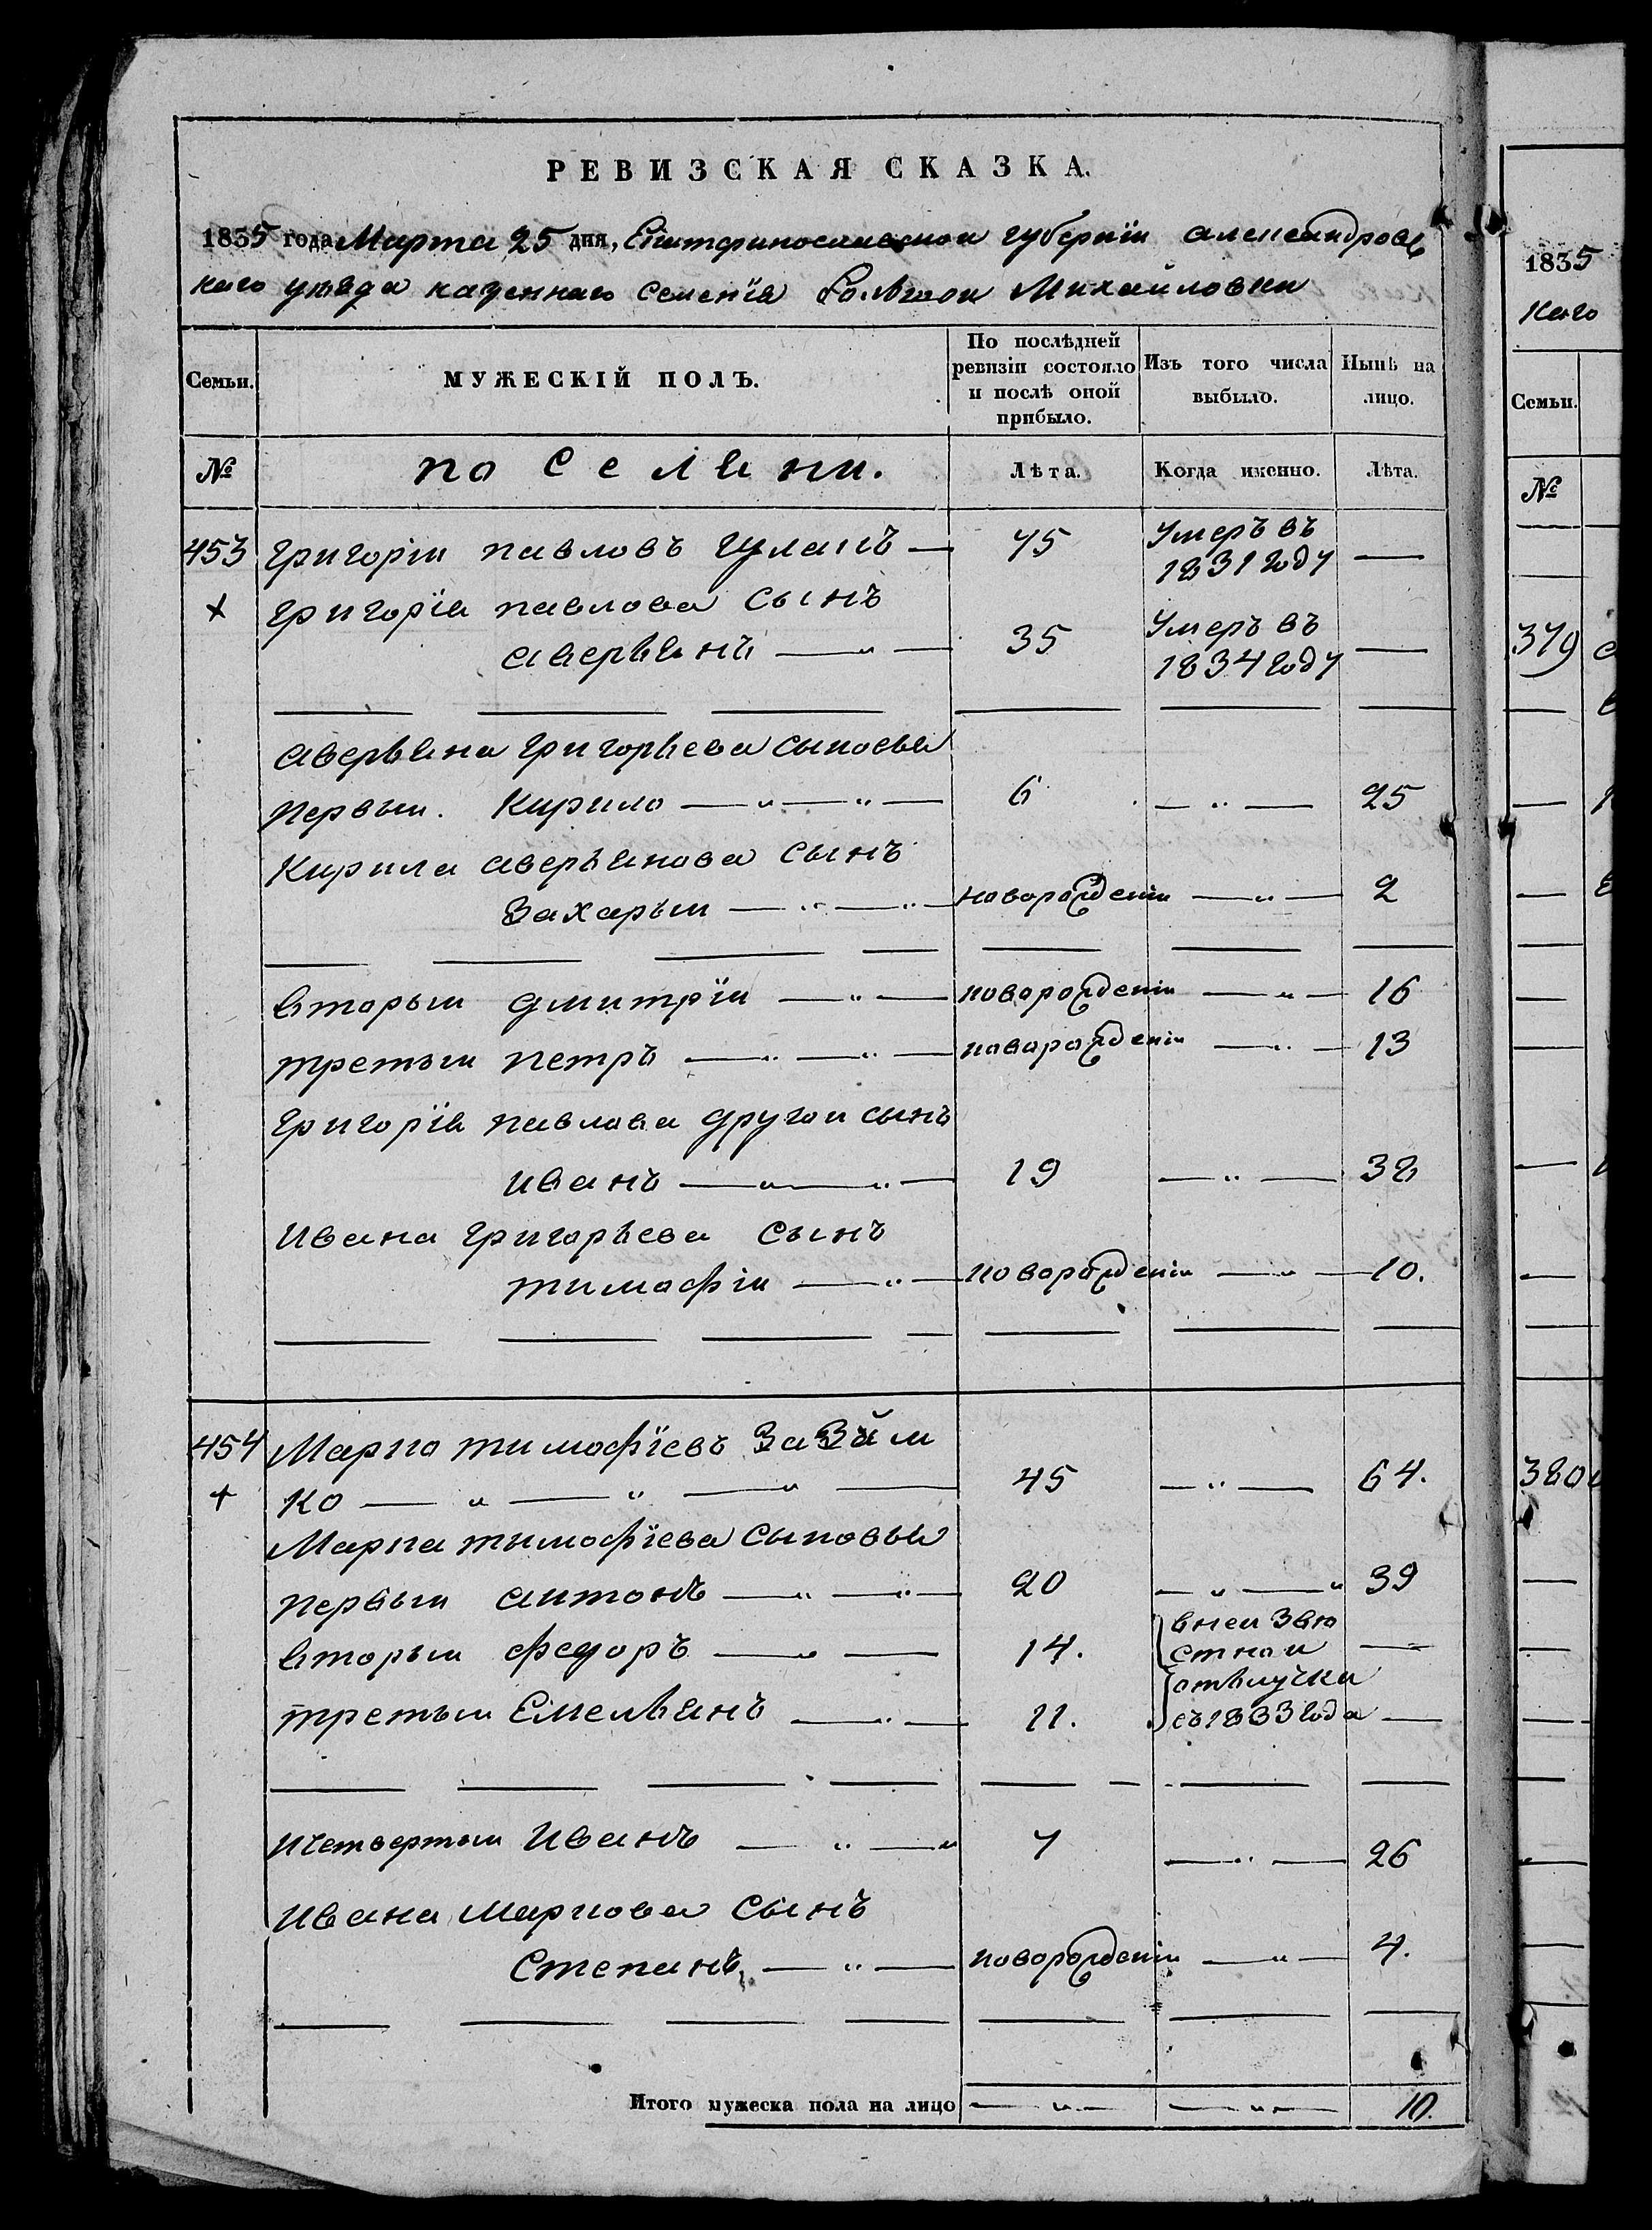 РЕВИЗСКАЯ СКАЗКА.
1835 года Марта 25 дня, Екатеринославской губернїи александровс
каго уѣзда казеннаго селенїя Большой Михайловки
Семьи. МУЖЕСКІЙ ПОЛЪ. По послѣдней ревизіи состояло и послѣ оной прибыло. Изъ того числа выбыло. Нынѣ на лицо.
№ Лѣта. Когда именно. Лѣта.
453 григорїи павловъ гулакъ — 75 Умеръ въ 1831 году —
× григорїя павлова сынъ
аверьянъ — " — 35 Умеръ въ 1834 году —
аверьяна григорьева сыновья
первыи. Кирило — " — " — 6 — " — 25
Кирила аверьянова сынъ
Захарыи — " — " — новорожденїи — " — 2
вторыи дмитрїи — " — новорожденїи — " — 16
третыи петръ — " — " — новорожденїи — " — 13
григорїя павлова другои сынъ
иванъ — " — " — 19 — " — 38
ивана григорьева сынъ
тимофїи — " — новорожденїи — " — 10.
454 Марко тимофїевъ Зазӑм
× ко — " — " — " — 45 — " — 64.
Марка тимофїева сыновья
первыи антонъ — " — " — 20 — " — " 39
вторыи федоръ — " — 14. внеизвѣ
стнои —
третыи Емельянъ — " — 11. отълучки
съ 1833 года —
ичетвертыи иванъ — " — " 7 — " — 26
ивана маркова сынъ
Степанъ, — " — новорожденїи — " — 4.
Итого мужеска пола на лицо — " — — " — 10.
1835
каго
Семьи.
№
379
380